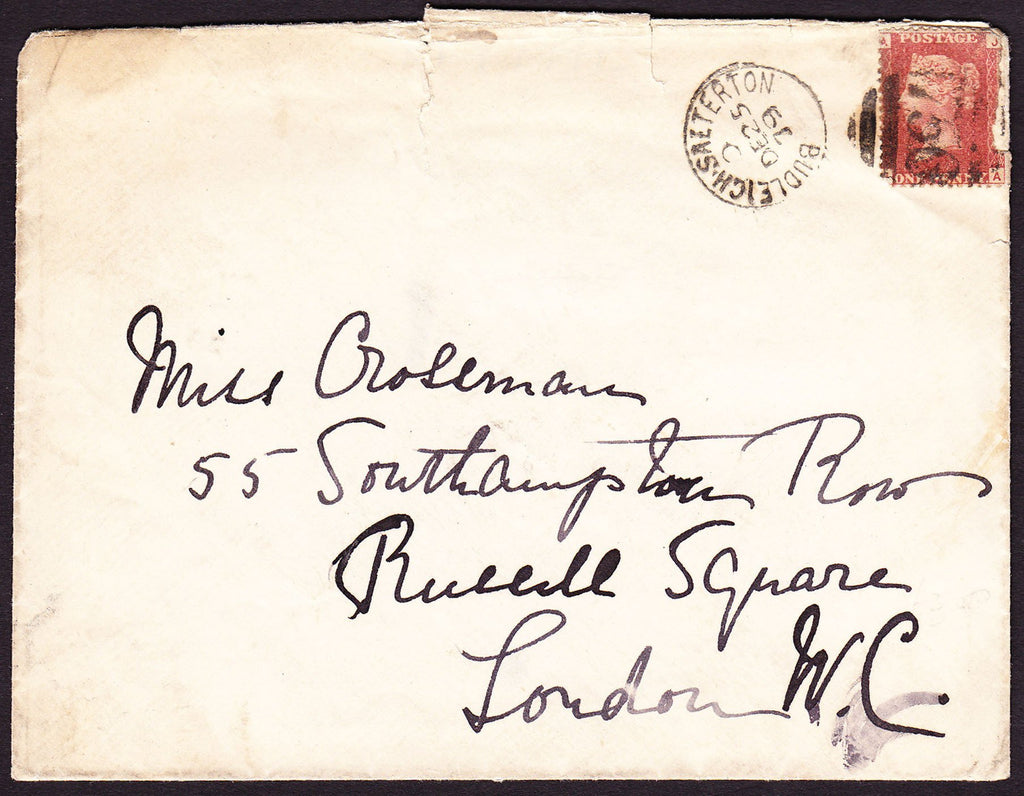 A POSTAGE J
ONE PENNY A
BUDLEIGH-SALTERTON
C
DE 25
79
Miss Crossman
55 Southampton Row
Russell Square
London W.C.